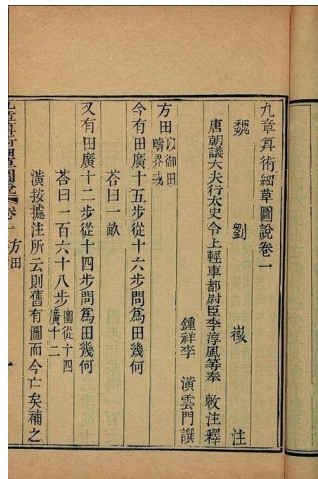 九章算術細草圖說卷一
魏 劉 徽 注
唐朝議大夫行太史令上輕車都尉臣李淳風等奉 敕注釋
鍾祥李 潢雲門撰
方田 以御田疇界域
今有田廣十五步從十六步問爲田幾何
荅曰一畝
又有田廣十二步從十四步問爲田幾何
荅曰一百六十八步 圖從十四廣十二
潢按據注所云則舊有圖而今亡矣補之
九章算術細草圖說 卷一 方田 一